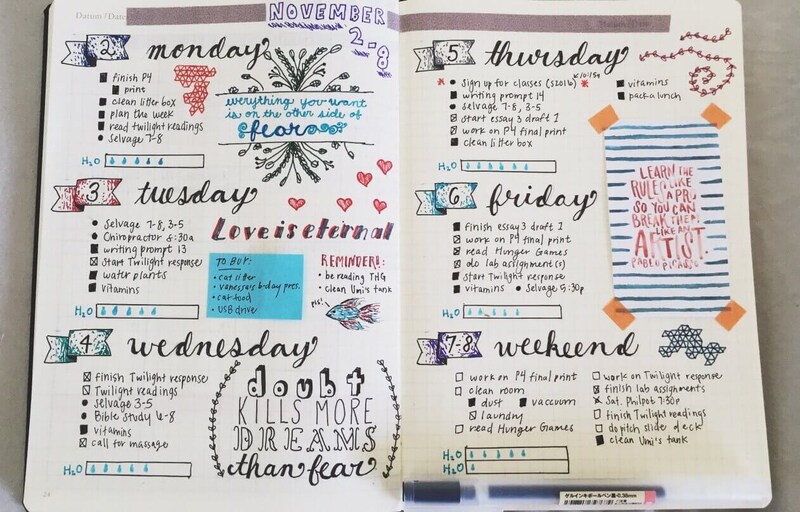 Datum / Date:
NOVEMBER
2-8
2
monday
finish P4
print
clean litter box
plan the week
read twilight readings
Selvage 7-8
H2O
everything you want
is on the other side of
fear
3
tuesday
Selvage 7-8, 3-5
Chiropractor 8:30a
writing prompt 13
Start Twilight response
water plants
vitamins
H2O
Love is eternal
TO BUY:
cat litter
vanessa's b-day pres.
cat food
USB drive
REMINDER!:
be reading THG
clean Umi's tank
4
wednesday
finish Twilight response
Twilight readings
Selvage 3-5
Bible Study 6-8
vitamins
call for massage
H2O
doubt
KILLS MORE
DREAMS
than fear
34
5
thursday
sign up for classes (S2016)
writing prompt 14
Selvage 7-8, 3-5
start essay 3 draft 1
work on P4 final print
clean litter box
vitamins
pack a lunch
H2O
LEARN THE
RULES LIKE
A PRO
SO YOU CAN
BREAK THEM
LIKE AN
ARTIST.
PABLO PICASSO
6
friday
finish essay 3 draft 1
work on P4 final print
read Hunger Games
do lab assignment(s)
start Twilight response
vitamins
Selvage 5:30p
H2O
7-8
weekeend
work on P4 final print
clean room
dust
vaccuum
laundry
read Hunger Games
work on Twilight response
finish lab assignments
Sat. Philpot 7:30p
finish Twilight readings
do pitch slide deck
clean Umi's tank
H2O
H2O
ゲルインキボールペン 0.38mm